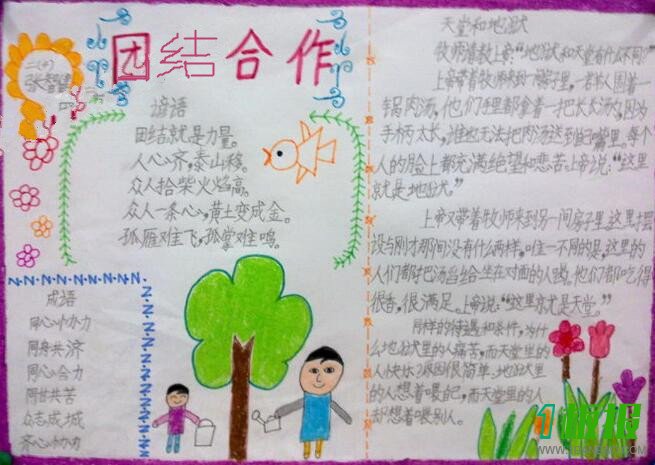 团结合作
二(4)
谚语
团结就是力量。
人心齐,泰山移。
众人拾柴火焰高。
众人一条心,黄土变成金。
孤雁难飞,孤掌难鸣。
成语
同心协力
同舟共济
同心合力
同甘共苦
众志成城
齐心协力
天堂和地狱
牧师请教上帝:“地狱和天堂有什么不同?”
上帝带着牧师来到一间房子里。一群人围着一
锅肉汤,他们手里都拿着一把长长汤勺,因为
手柄太长,谁也无法把肉汤送到自己嘴里。每个
人的脸上都充满绝望和悲苦。上帝说:“这里
就是地狱。”
上帝又带着牧师来到另一间房子里。这里摆
设与刚才那间没有什么两样,唯一不同的是,这里的
人们都把汤舀给坐在对面的人喝。他们都吃得
很香,很满足。上帝说:“这里就是天堂。”
同样的待遇和条件,为什
么地狱里的人痛苦,而天堂里的
人快乐?原因很简单:地狱里
的人想着喂自己,而天堂里的人
却想着喂别人。